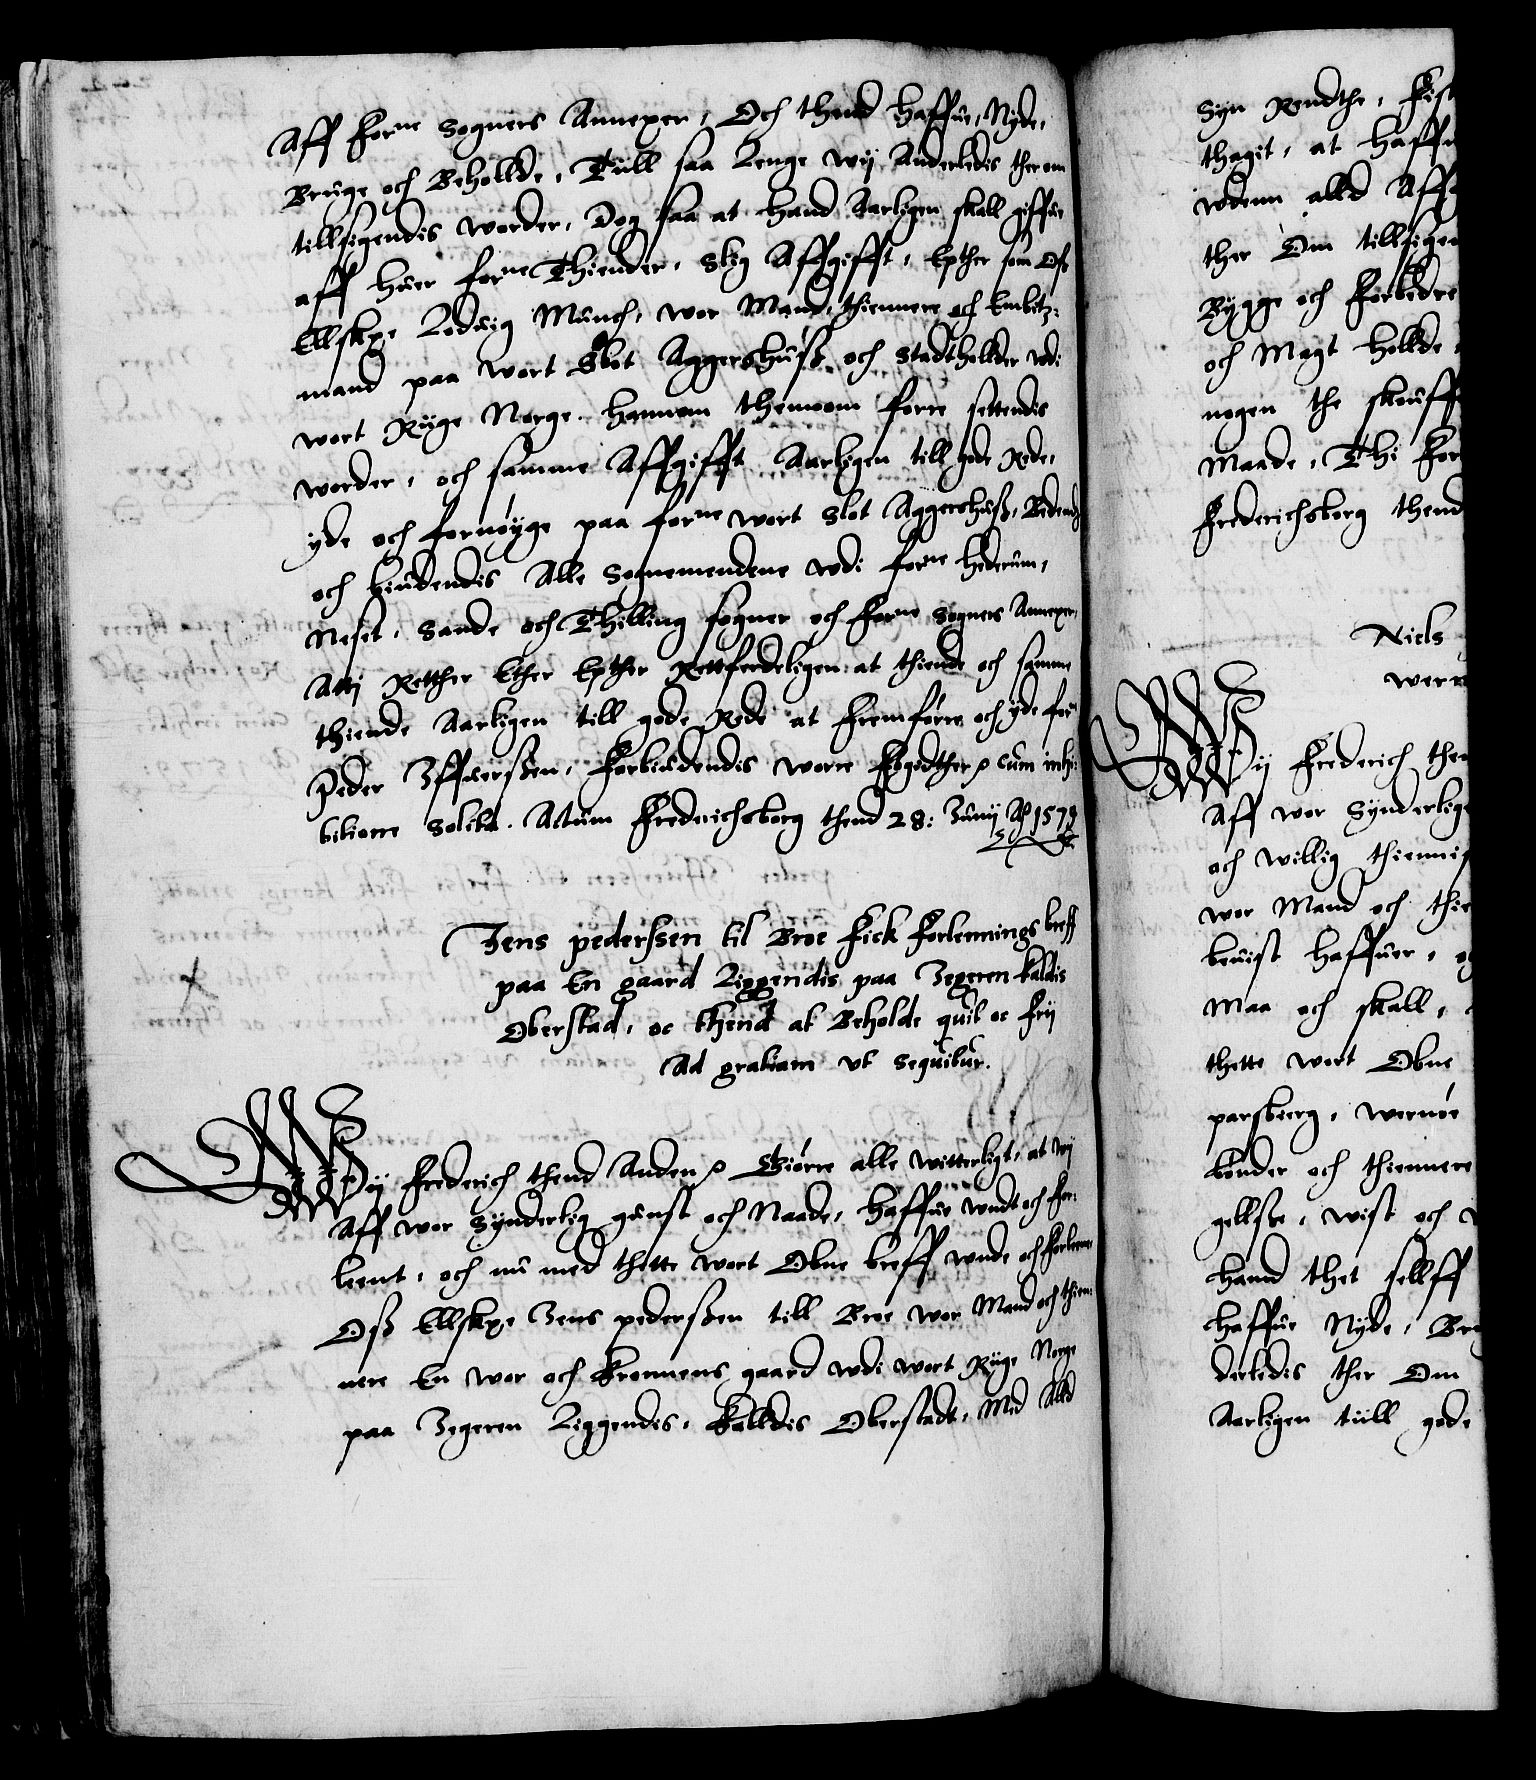 Aff forne Sogners Annexer, Och thend haffue, Nyde,
Bruge och Beholde, Tiill saa Lenge wij Anderledis ther om
tillsigendis worder, Dog saa at hand Aarligen skall giffue
aff huer forne Thiender, slig Affgifft, Epther som Oss
Ellskxe Loduig Munch, wor Mand, thiennere och Embitz-
mand paa wort Slot Aggershuss, och Stadtholder wdi
wort Riige Norge. hannom thennom forre settendis
worder, och samme Affgifft Aarligen till gode Rede,
yde och fornøyge paa forne wort Slot Aggershuss, Bedendis
och biudendis Alle Sognemendene wdi forne Hederum,
Neset, Sande och Thilling sogner och forne Sogners Annexer,
Atti Retther Ether Epther Rettferdeligen at thiende och samme
thiende Aarligen till gode Rede at fremføre och yde forne
Peder Iffuerssen, Forbiudendis worre fogedther &c cum inhi-
bitione solita. Actum Frederichsborg thend 28: Junij Ao 1579
Jens pederssen til Broe fick Forlennings breff
paa En gaard Liggendis paa Jegeren kaldis
Oberstad, oc thend at Beholde quit oc frij
Ad gratiam vt sequitur.
Wij Frederich thend Anden &c Giørre alle witterligt, at wij
Aff wor synderlig gunst och Naade, haffue wndt och for-
leent, och nu med thette wort Obne breff wnde och forlenne
Oss Ellskxe Jens pederssen till Broe wor Mand och thien-
nere En wor och Kronnens gaard wdi wort Riige Norge
paa Jegeren Liggendis, Kalldis Oberstadt, Med Alld
Syn Rendthe,
thagit, at
wdenn alld
ther Om
Bygge och Forbedre
och Magt holde
nogen the
Maade, Thi
Frederichsborg thend
Niels
Wij Frederich
Aff wor Synderlige
och willig
wor Mand och
beuist haffuer,
Maa och skall,
thette wort Obne
parsberg,
bønder och thiennere
gellste, wist och
hand thet sellff
haffue Nyde,
derledis ther Om
Aarligen tiill gode